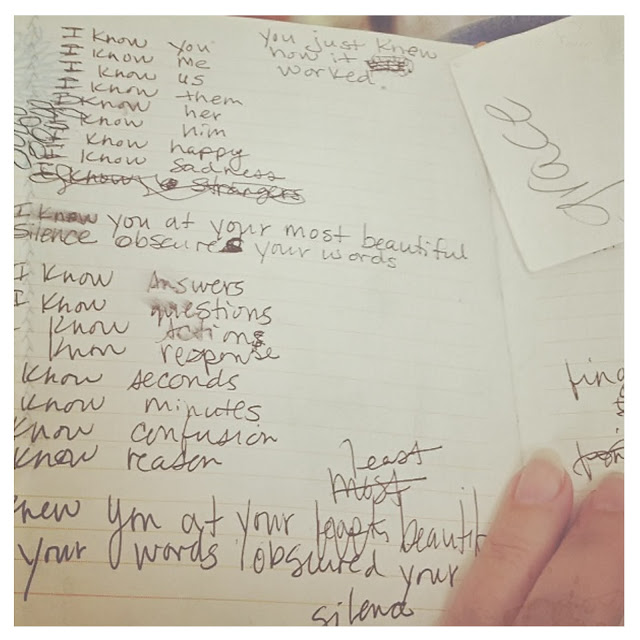 I know you
I know me
I know us
I know them
I know her
I know him
I know happy
I know sadness
I know strangers
you just knew
how it
worked.
grace
I know you at your most beautiful
silence obscures your words
I know answers
I know questions
I know actions
know response
know seconds
know minutes
know confusion
know reason
least
most
knew you at your least beautif
your words obscured your
silence